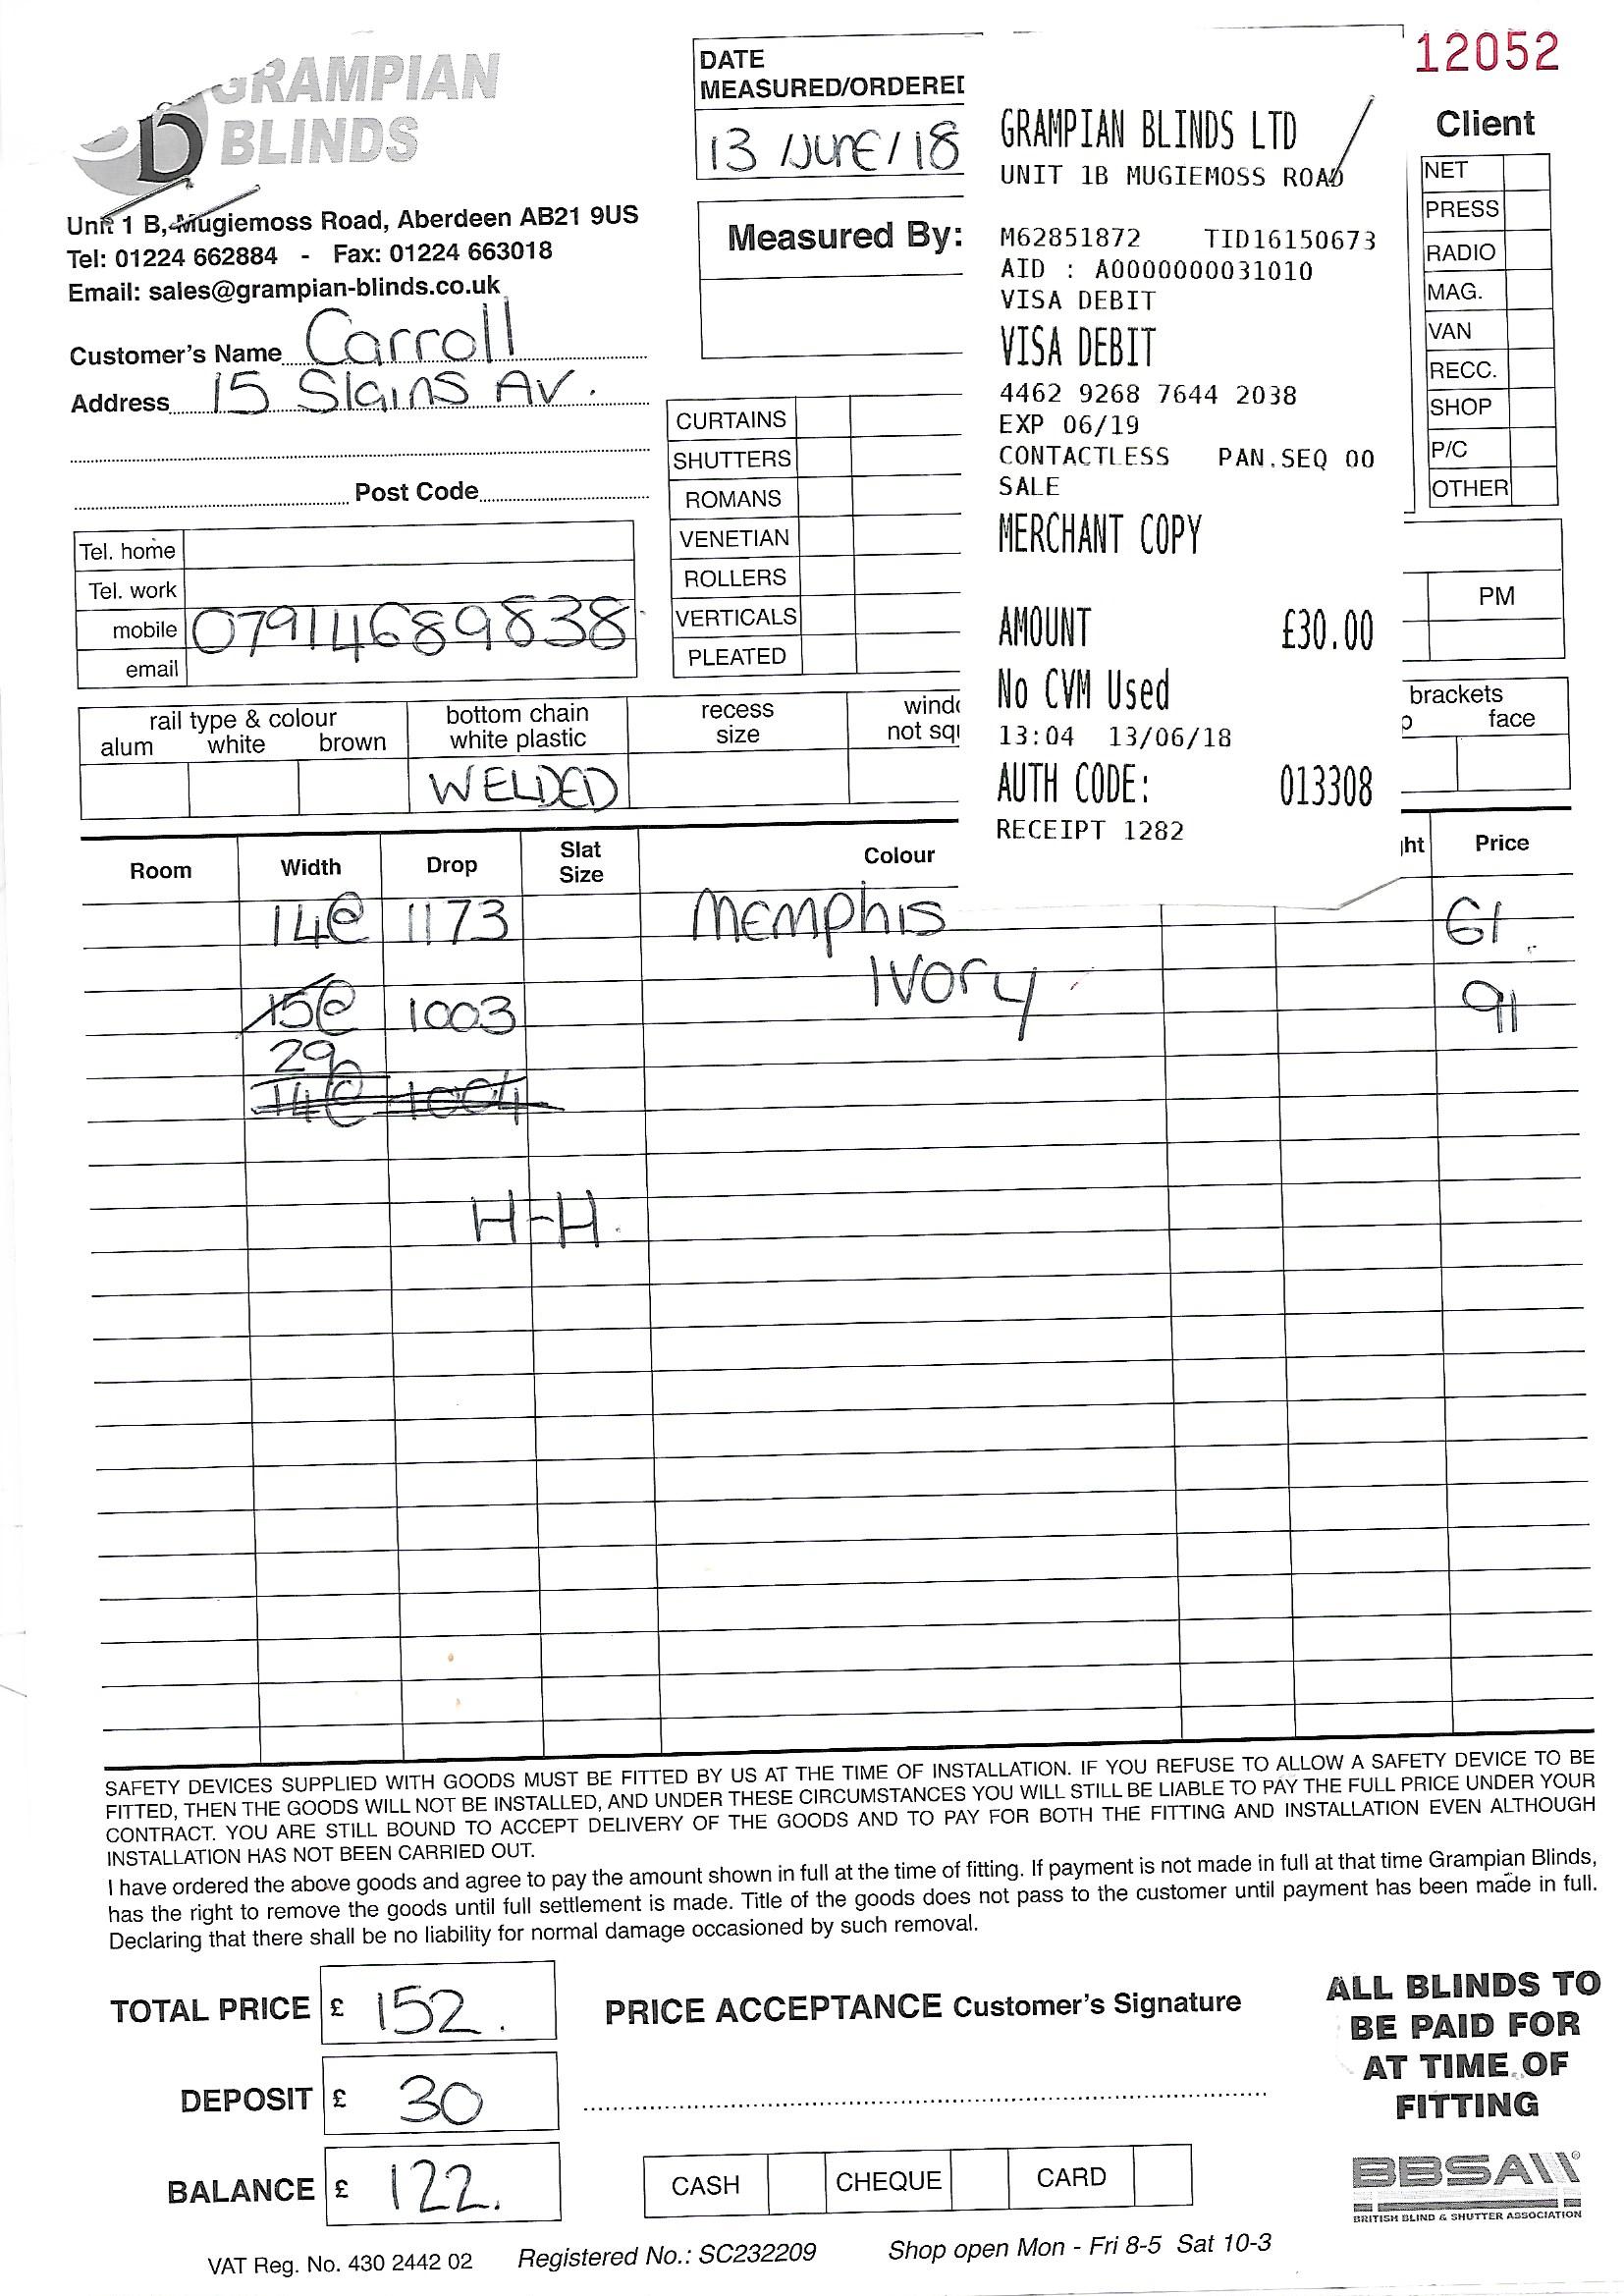 12052
GRAMPIAN
BLINDS
Unit 1 B, Mugiemoss Road, Aberdeen AB21 9US
Tel: 01224 662884 - Fax: 01224 663018
Email: sales@grampian-blinds.co.uk
Customer's Name Carroll
Address 15 Slains Av.
Post Code
Tel. home
Tel. work
mobile 07914689838
email
DATE
MEASURED/ORDERED
13/June/18
Measured By:
CURTAINS
SHUTTERS
ROMANS
VENETIAN
ROLLERS
VERTICALS
PLEATED
GRAMPIAN BLINDS LTD
UNIT 1B MUGIEMOSS ROAD
M62851872 TID16150673
AID : A0000000031010
VISA DEBIT
VISA DEBIT
4462 9268 7644 2038
EXP 06/19
CONTACTLESS PAN.SEQ 00
SALE
MERCHANT COPY
AMOUNT £30.00
No CVM Used
13:04 13/06/18
AUTH CODE: 013308
RECEIPT 1282
Client
NET
PRESS
RADIO
MAG.
VAN
RECC.
SHOP
P/C
OTHER
PM
rail type & colour
alum white brown
bottom chain
white plastic
WELDED
recess
size
not
brackets
face
Room Width Drop Slat Size Colour Price
14@ 1173 Memphis 61
Ivory
15@ 1003 91
29@
14@ 1004
H-H.
SAFETY DEVICES SUPPLIED WITH GOODS MUST BE FITTED BY US AT THE TIME OF INSTALLATION. IF YOU REFUSE TO ALLOW A SAFETY DEVICE TO BE
FITTED, THEN THE GOODS WILL NOT BE INSTALLED, AND UNDER THESE CIRCUMSTANCES YOU WILL STILL BE LIABLE TO PAY THE FULL PRICE UNDER YOUR
CONTRACT. YOU ARE STILL BOUND TO ACCEPT DELIVERY OF THE GOODS AND TO PAY FOR BOTH THE FITTING AND INSTALLATION EVEN ALTHOUGH
INSTALLATION HAS NOT BEEN CARRIED OUT.
I have ordered the above goods and agree to pay the amount shown in full at the time of fitting. If payment is not made in full at that time Grampian Blinds,
has the right to remove the goods until full settlement is made. Title of the goods does not pass to the customer until payment has been made in full.
Declaring that there shall be no liability for normal damage occasioned by such removal.
TOTAL PRICE £ 152.
DEPOSIT £ 30
BALANCE £ 122.
PRICE ACCEPTANCE Customer's Signature
CASH CHEQUE CARD
ALL BLINDS TO
BE PAID FOR
AT TIME OF
FITTING
BBSA
BRITISH BLIND & SHUTTER ASSOCIATION
VAT Reg. No. 430 2442 02 Registered No.: SC232209 Shop open Mon - Fri 8-5 Sat 10-3